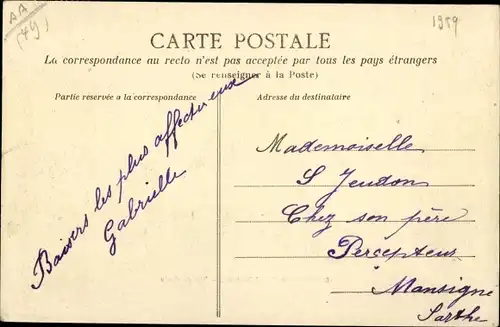 AA
(49)
1359
CARTE POSTALE
La correspondance au recto n'est pas acceptée par tous les pays étrangers
(Se renseigner à la Poste)
Partie réservée à la correspondance
Adresse du destinataire
Baisers les plus affectueux
Gabrielle
Mademoiselle
S Jeudon
Chez son père
Percepteur
Mansigné
Sarthe